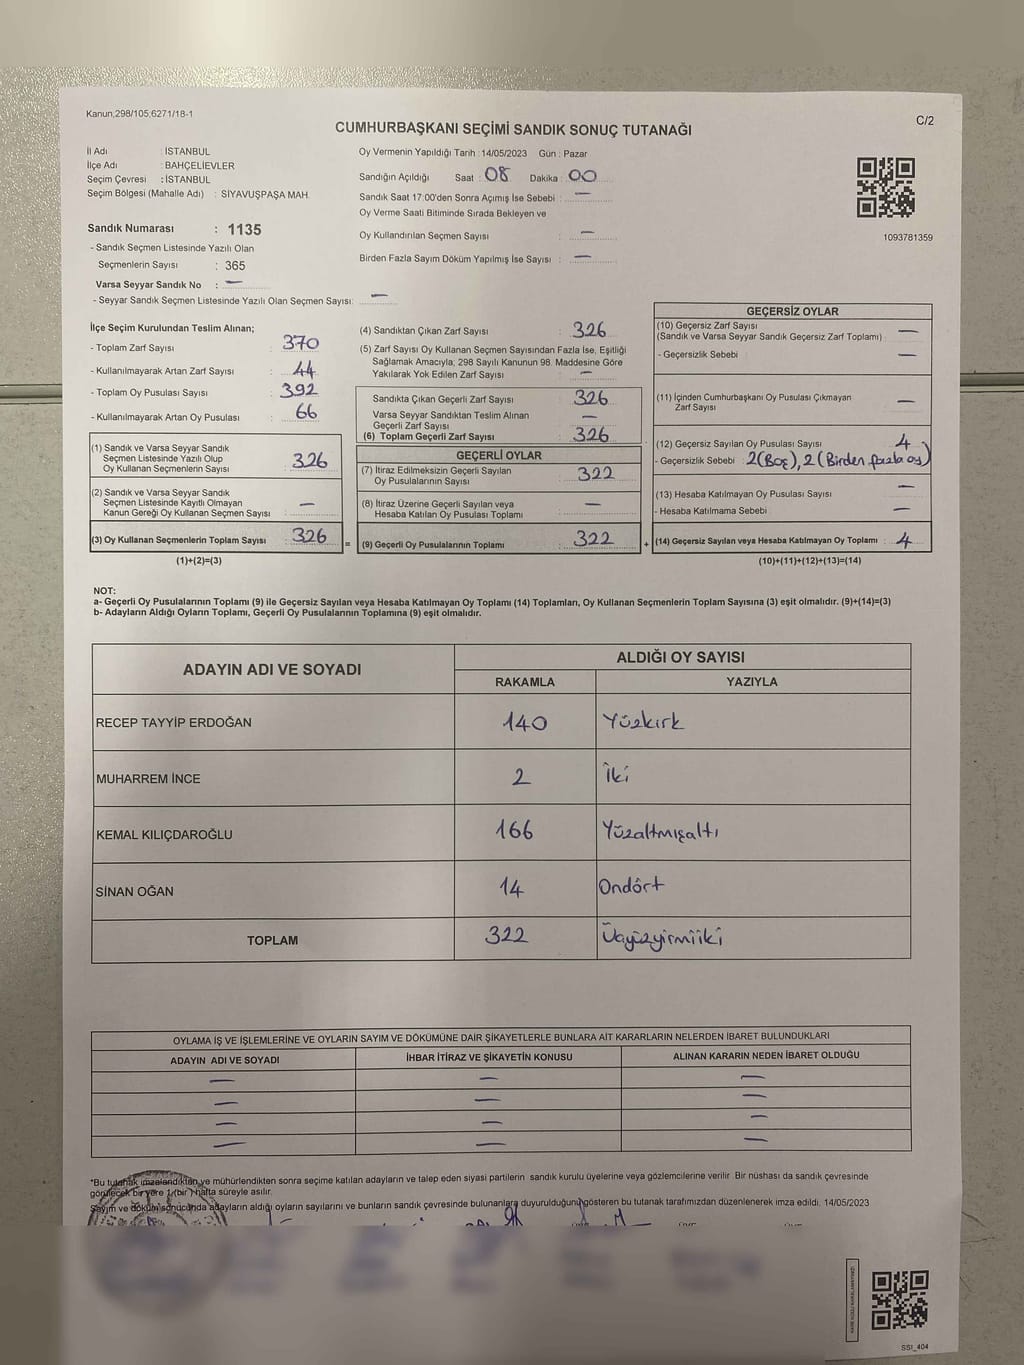 Kanun,298/105,6271/18-1
C/2
CUMHURBAŞKANI SEÇİMİ SANDIK SONUÇ TUTANAĞI
İl Adı : İSTANBUL
İlçe Adı : BAHÇELİEVLER
Seçim Çevresi : İSTANBUL
Seçim Bölgesi (Mahalle Adı) : SİYAVUŞPAŞA MAH.
Sandık Numarası : 1135
- Sandık Seçmen Listesinde Yazılı Olan
Seçmenlerin Sayısı : 365
Varsa Seyyar Sandık No : —
- Seyyar Sandık Seçmen Listesinde Yazılı Olan Seçmen Sayısı: —
Oy Vermenin Yapıldığı Tarih : 14/05/2023 Gün : Pazar
Sandığın Açıldığı Saat : 08 Dakika : 00
Sandık Saat 17:00'den Sonra Açımış İse Sebebi : —
Oy Verme Saati Bitiminde Sırada Bekleyen ve
Oy Kullandırılan Seçmen Sayısı : —
Birden Fazla Sayım Döküm Yapılmış İse Sayısı : —
1093781359
İlçe Seçim Kurulundan Teslim Alınan;
- Toplam Zarf Sayısı : 370
- Kullanılmayarak Artan Zarf Sayısı : 44
- Toplam Oy Pusulası Sayısı : 392
- Kullanılmayarak Artan Oy Pusulası : 66
(1) Sandık ve Varsa Seyyar Sandık
Seçmen Listesinde Yazılı Olup
Oy Kullanan Seçmenlerin Sayısı : 326
(2) Sandık ve Varsa Seyyar Sandık
Seçmen Listesinde Kayıtlı Olmayan
Kanun Gereği Oy Kullanan Seçmen Sayısı : —
(3) Oy Kullanan Seçmenlerin Toplam Sayısı : 326
(1)+(2)=(3)
(4) Sandıktan Çıkan Zarf Sayısı : 326
(5) Zarf Sayısı Oy Kullanan Seçmen Sayısından Fazla İse, Eşitliği
Sağlamak Amacıyla, 298 Sayılı Kanunun 98. Maddesine Göre
Yakılarak Yok Edilen Zarf Sayısı : —
Sandıkta Çıkan Geçerli Zarf Sayısı : 326
Varsa Seyyar Sandıktan Teslim Alınan
Geçerli Zarf Sayısı : —
(6) Toplam Geçerli Zarf Sayısı : 326
GEÇERLİ OYLAR
(7) İtiraz Edilmeksizin Geçerli Sayılan
Oy Pusulalarının Sayısı : 322
(8) İtiraz Üzerine Geçerli Sayılan veya
Hesaba Katılan Oy Pusulası Toplamı : —
= (9) Geçerli Oy Pusulalarının Toplamı : 322
GEÇERSİZ OYLAR
(10) Geçersiz Zarf Sayısı
(Sandık ve Varsa Seyyar Sandık Geçersiz Zarf Toplamı) : —
- Geçersizlik Sebebi : —
(11) İçinden Cumhurbaşkanı Oy Pusulası Çıkmayan
Zarf Sayısı : —
(12) Geçersiz Sayılan Oy Pusulası Sayısı : 4
- Geçersizlik Sebebi : 2(Boş), 2(Birden fazla oy)
(13) Hesaba Katılmayan Oy Pusulası Sayısı : —
- Hesaba Katılmama Sebebi : —
+ (14) Geçersiz Sayılan veya Hesaba Katılmayan Oy Toplamı : 4
(10)+(11)+(12)+(13)=(14)
NOT:
a- Geçerli Oy Pusulalarının Toplamı (9) ile Geçersiz Sayılan veya Hesaba Katılmayan Oy Toplamı (14) Toplamları, Oy Kullanan Seçmenlerin Toplam Sayısına (3) eşit olmalıdır. (9)+(14)=(3)
b- Adayların Aldığı Oyların Toplamı, Geçerli Oy Pusulalarının Toplamına (9) eşit olmalıdır.
ADAYIN ADI VE SOYADI
ALDIĞI OY SAYISI
RAKAMLA YAZIYLA
RECEP TAYYİP ERDOĞAN 140 Yüzkırk
MUHARREM İNCE 2 İki
KEMAL KILIÇDAROĞLU 166 Yüzaltmışaltı
SİNAN OĞAN 14 Ondört
TOPLAM 322 Üçyüzyirmiiki
OYLAMA İŞ VE İŞLEMLERİNE VE OYLARIN SAYIM VE DÖKÜMÜNE DAİR ŞİKAYETLERLE BUNLARA AİT KARARLARIN NELERDEN İBARET BULUNDUKLARI
ADAYIN ADI VE SOYADI İHBAR İTİRAZ VE ŞİKAYETİN KONUSU ALINAN KARARIN NEDEN İBARET OLDUĞU
— — —
— — —
— — —
— — —
*Bu tutanak imzalandıktan ve mühürlendikten sonra seçime katılan adayların ve talep eden siyasi partilerin sandık kurulu üyelerine veya gözlemcilerine verilir. Bir nüshası da sandık çevresinde
görülecek bir yere 1 (bir) hafta süreyle asılır.
Sayım ve döküm sonucunda adayların aldığı oyların sayılarını ve bunların sandık çevresinde bulunanlara duyurulduğunu gösteren bu tutanak tarafımızdan düzenlenerek imza edildi. 14/05/2023
SSI_404